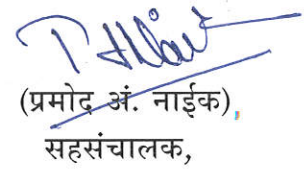 (प्रमोद अं. नाईक),
सहसंचालक,